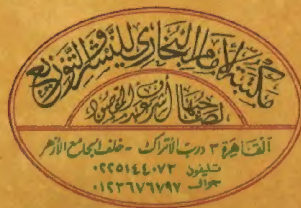 مكتبة الإمام البخاري للنشر والتوزيع
لصاحبها أشرف عبد المقصود
القاهرة ٣ درب الأتراك - خلف الجامع الأزهر
تليفون ٠٢٢٥١٤٤٠٧٢
جوال ٠١٢٣٦٧٦٧٩٧